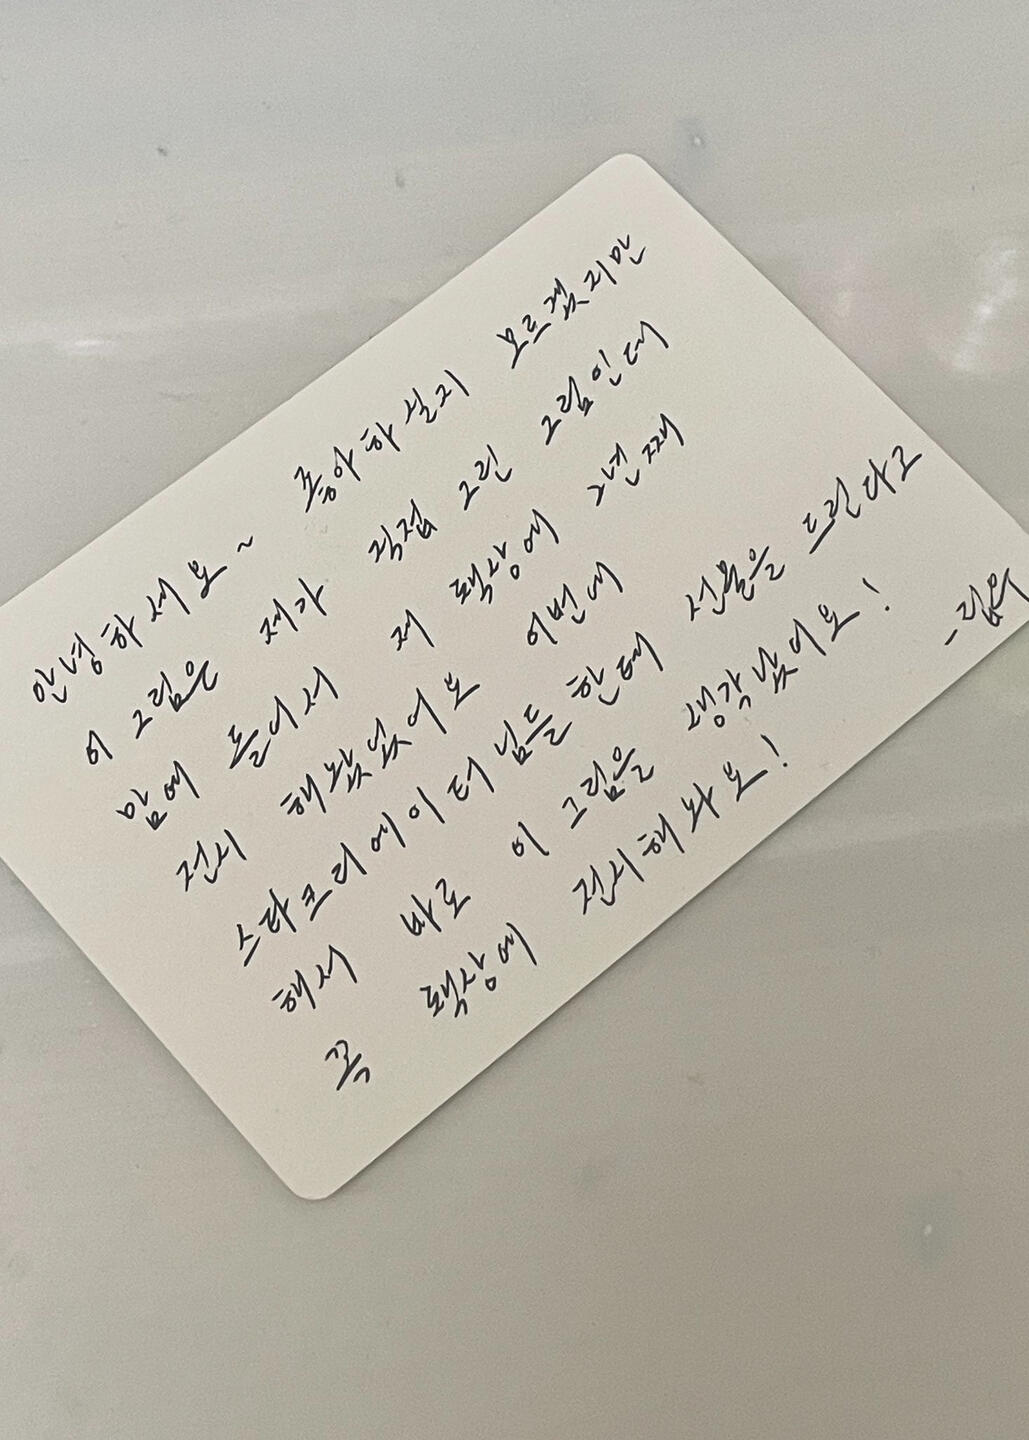 안녕하세요~ 좋아하실지 모르겠지만
이 그림은 제가 직접 그린 그림인데
맘에 들어서 제 책상에 2년째
전시 해놨었어요 이번에
스타크리에이터님들한테 선물을 드린다고
해서 바로 이 그림을 생각났어요!
꼭 책상에 전시해놔요!